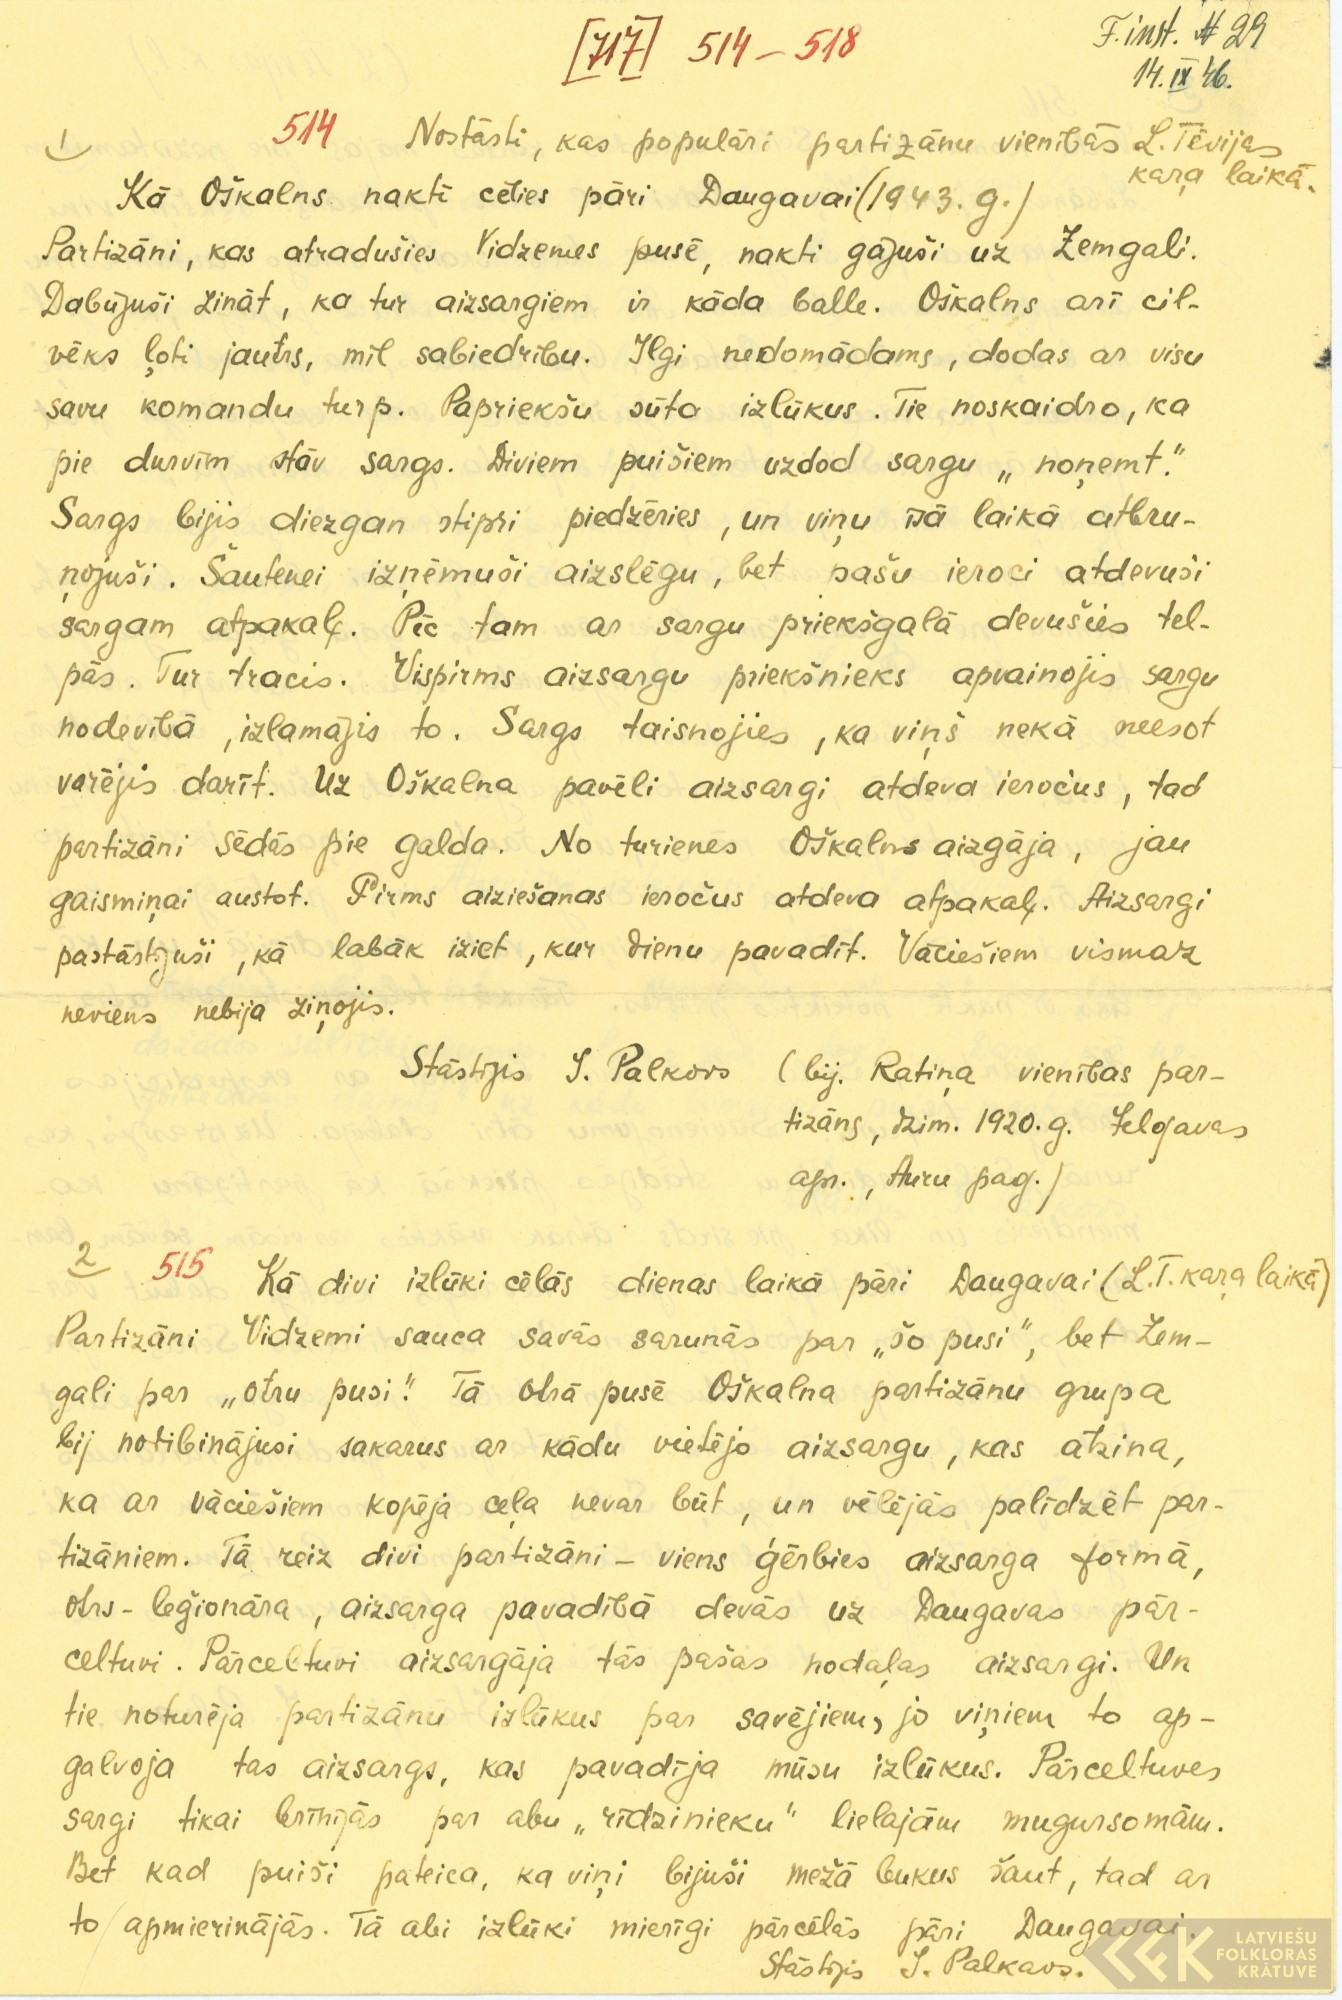 [717] 514 – 518
F. inst. # 29
14. IX 46.
1
514 Nostāsti, kas populāri partizānu vienībās L. Tēvijas
kaŗa laikā.
Kā Oškalns naktī cēlies pāri Daugavai (1943. g.)
Partizāni, kas atradušies Vidzemes pusē, nakti gājuši uz Zemgali.
Dabūjuši zināt, ka tur aizsargiem ir kāda balle. Oškalns arī cil-
vēks ļoti jautrs, mīl sabiedrību. Ilgi nedomādams, dodas ar visu
savu komandu turp. Papriekšu sūta izlūkus. Tie noskaidro, ka
pie durvīm stāv sargs. Diviem puišiem uzdod sargu „noņemt."
Sargs bijis diezgan stipri piedzēries, un viņu īsā laikā atbru-
ņojuši. Šautenei izņēmuši aizslēgu, bet pašu ieroci atdevuši
sargam atpakaļ. Pēc tam ar sargu priekšgalā devušies tel-
pās. Tur tracis. Vispirms aizsargu priekšnieks apvainojis sargu
nodevībā, izlamājis to. Sargs taisnojies, ka viņš nekā neesot
varējis darīt. Uz Oškalna pavēli aizsargi atdeva ieročus, tad
partizāni sēdās pie galda. No turienes Oškalns aizgāja, jau
gaismiņai austot. Pirms aiziešanas ieročus atdeva atpakaļ. Aizsargi
pastāstījuši, kā labāk iziet, kur dienu pavadīt. Vāciešiem vismaz
neviens nebija ziņojis.
Stāstījis J. Palkavs (bij. Ratiņa vienības par-
tizāns, dzim. 1920. g. Jelgavas
apr., Auru pag.)
2
515 Kā divi izlūki cēlās dienas laikā pāri Daugavai (L.T. kaŗa laikā)
Partizāni Vidzemi sauca savās sarunās par „šo pusi", bet Zem-
gali par „otru pusi". Tā otrā pusē Oškalna partizānu grupa
bij nodibinājusi sakarus ar kādu vietējo aizsargu, kas atzina,
ka ar vāciešiem kopēja ceļa nevar būt, un vēlējās palīdzēt par-
tizāniem. Tā reiz divi partizāni – viens ģērbies aizsarga formā,
otrs – leģionāra, aizsarga pavadībā devās uz Daugavas pār-
celtuvi. Pārceltuvi aizsargāja tās pašas nodaļas aizsargi. Un
tie noturēja partizānu izlūkus par savējiem, jo viņiem to ap-
galvoja tas aizsargs, kas pavadīja mūsu izlūkus. Pārceltuves
sargi tikai brīnījās par abu „rīdzinieku" lielajām mugursomām.
Bet kad puiši pateica, ka viņi bijuši mežā bukus šaut, tad ar
to apmierinājās. Tā abi izlūki mierīgi pārcēlās pāri Daugavai.
Stāstījis J. Palkavs.
LATVIEŠU
FOLKLORAS
KRĀTUVE